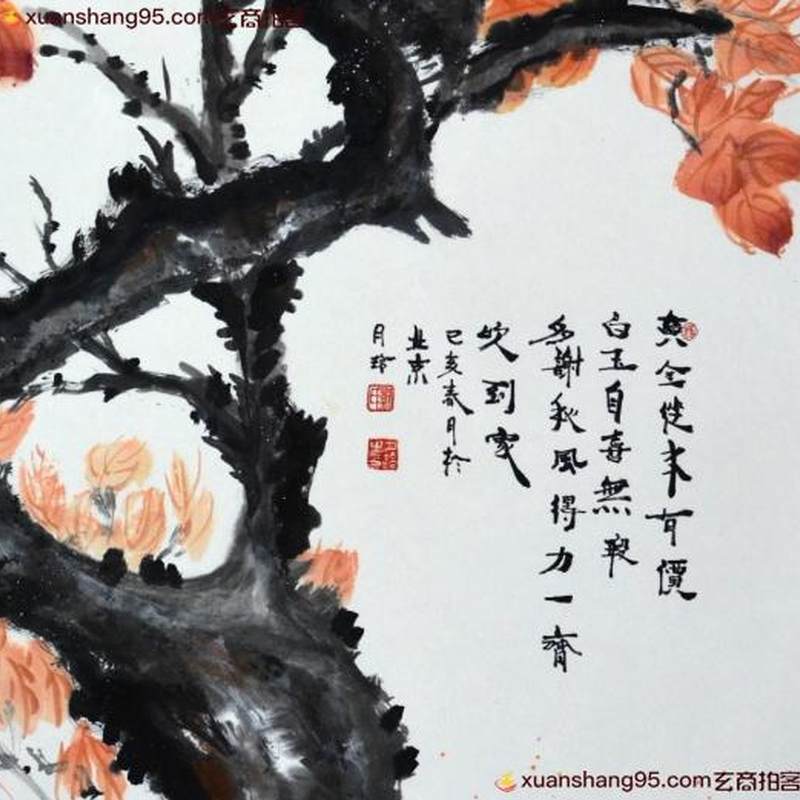 xuanshang95.com玄商拍客
黄金從来有價
白玉自喜無瑕
多謝秋風得力一齊
吹到家
己亥春月於
北京
月玲
xuanshang95.com玄商拍客